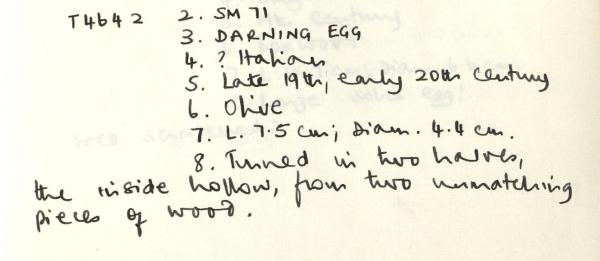 T4642 2. SM 71
3. DARNING EGG
4. ? Italian
5. Late 19th, early 20th century
6. Olive
7. L. 7.5 cm; Diam. 4.4 cm.
8. Turned in two halves,
the inside hollow, from two unmatching
pieces of wood.